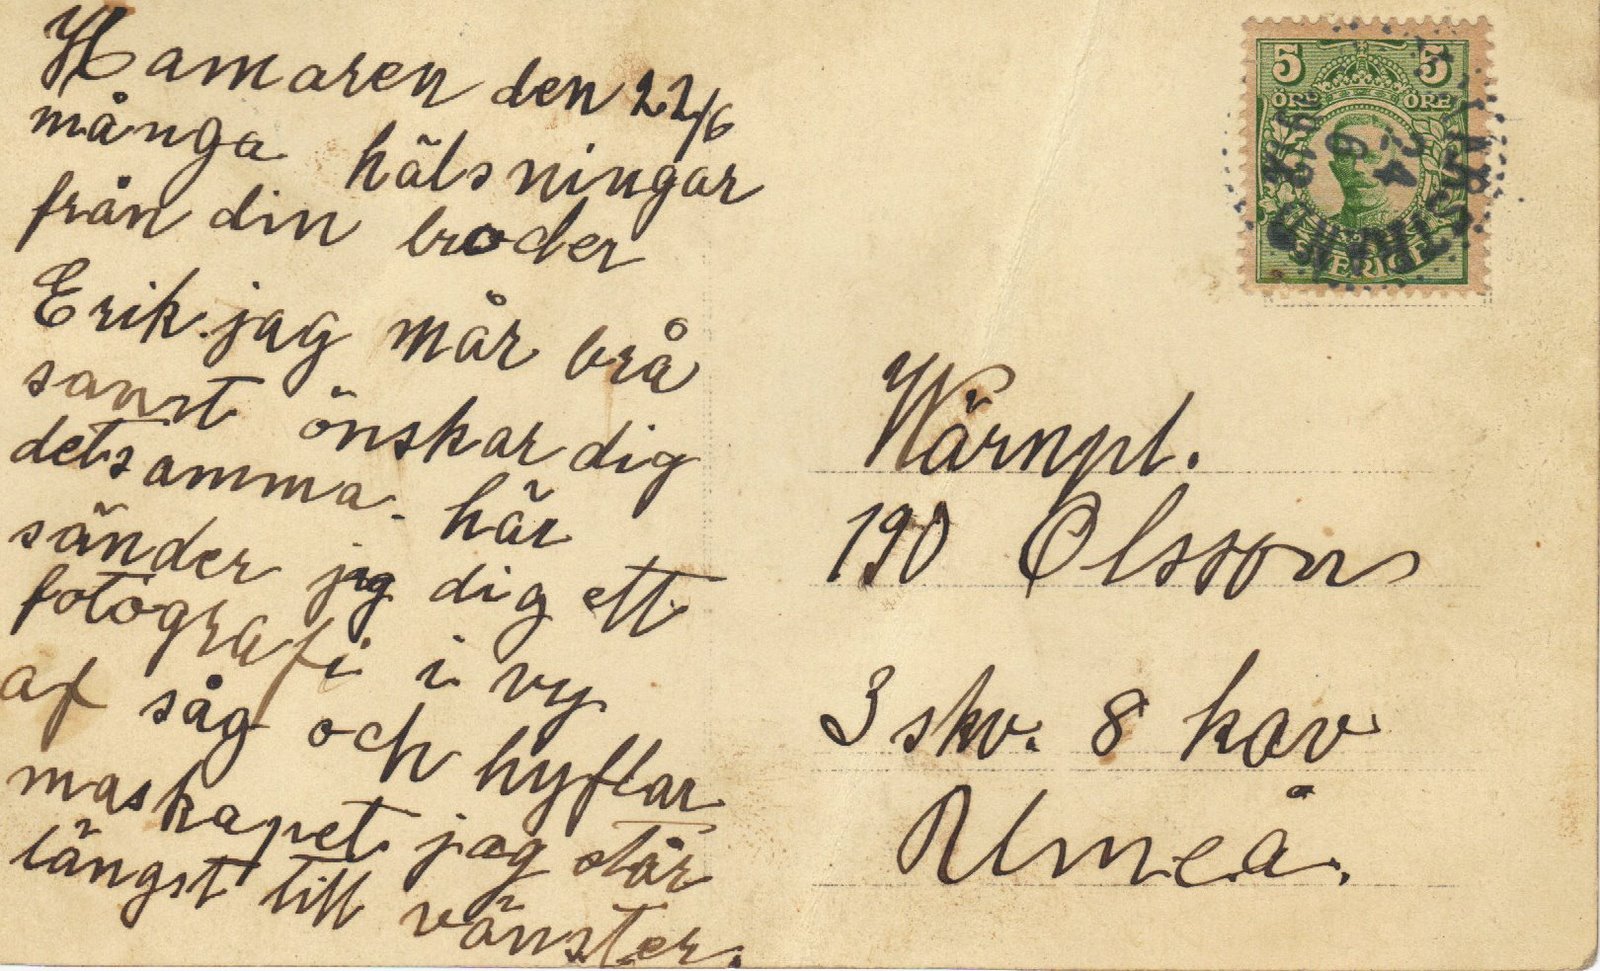 Hamaren den 22/6
många hälsningar
från din broder
Erik. jag mår brå
samt önskar dig
detsamma. här
sänder jag dig ett
fotografi i vy
af såg och hyflar
maskapet jag står
längst till vänster.
5 5
ÖRE ÖRE
SVERIGE
24
6
Wärnpl.
190 Olsson
3 skv. 8 kav
Umeå.